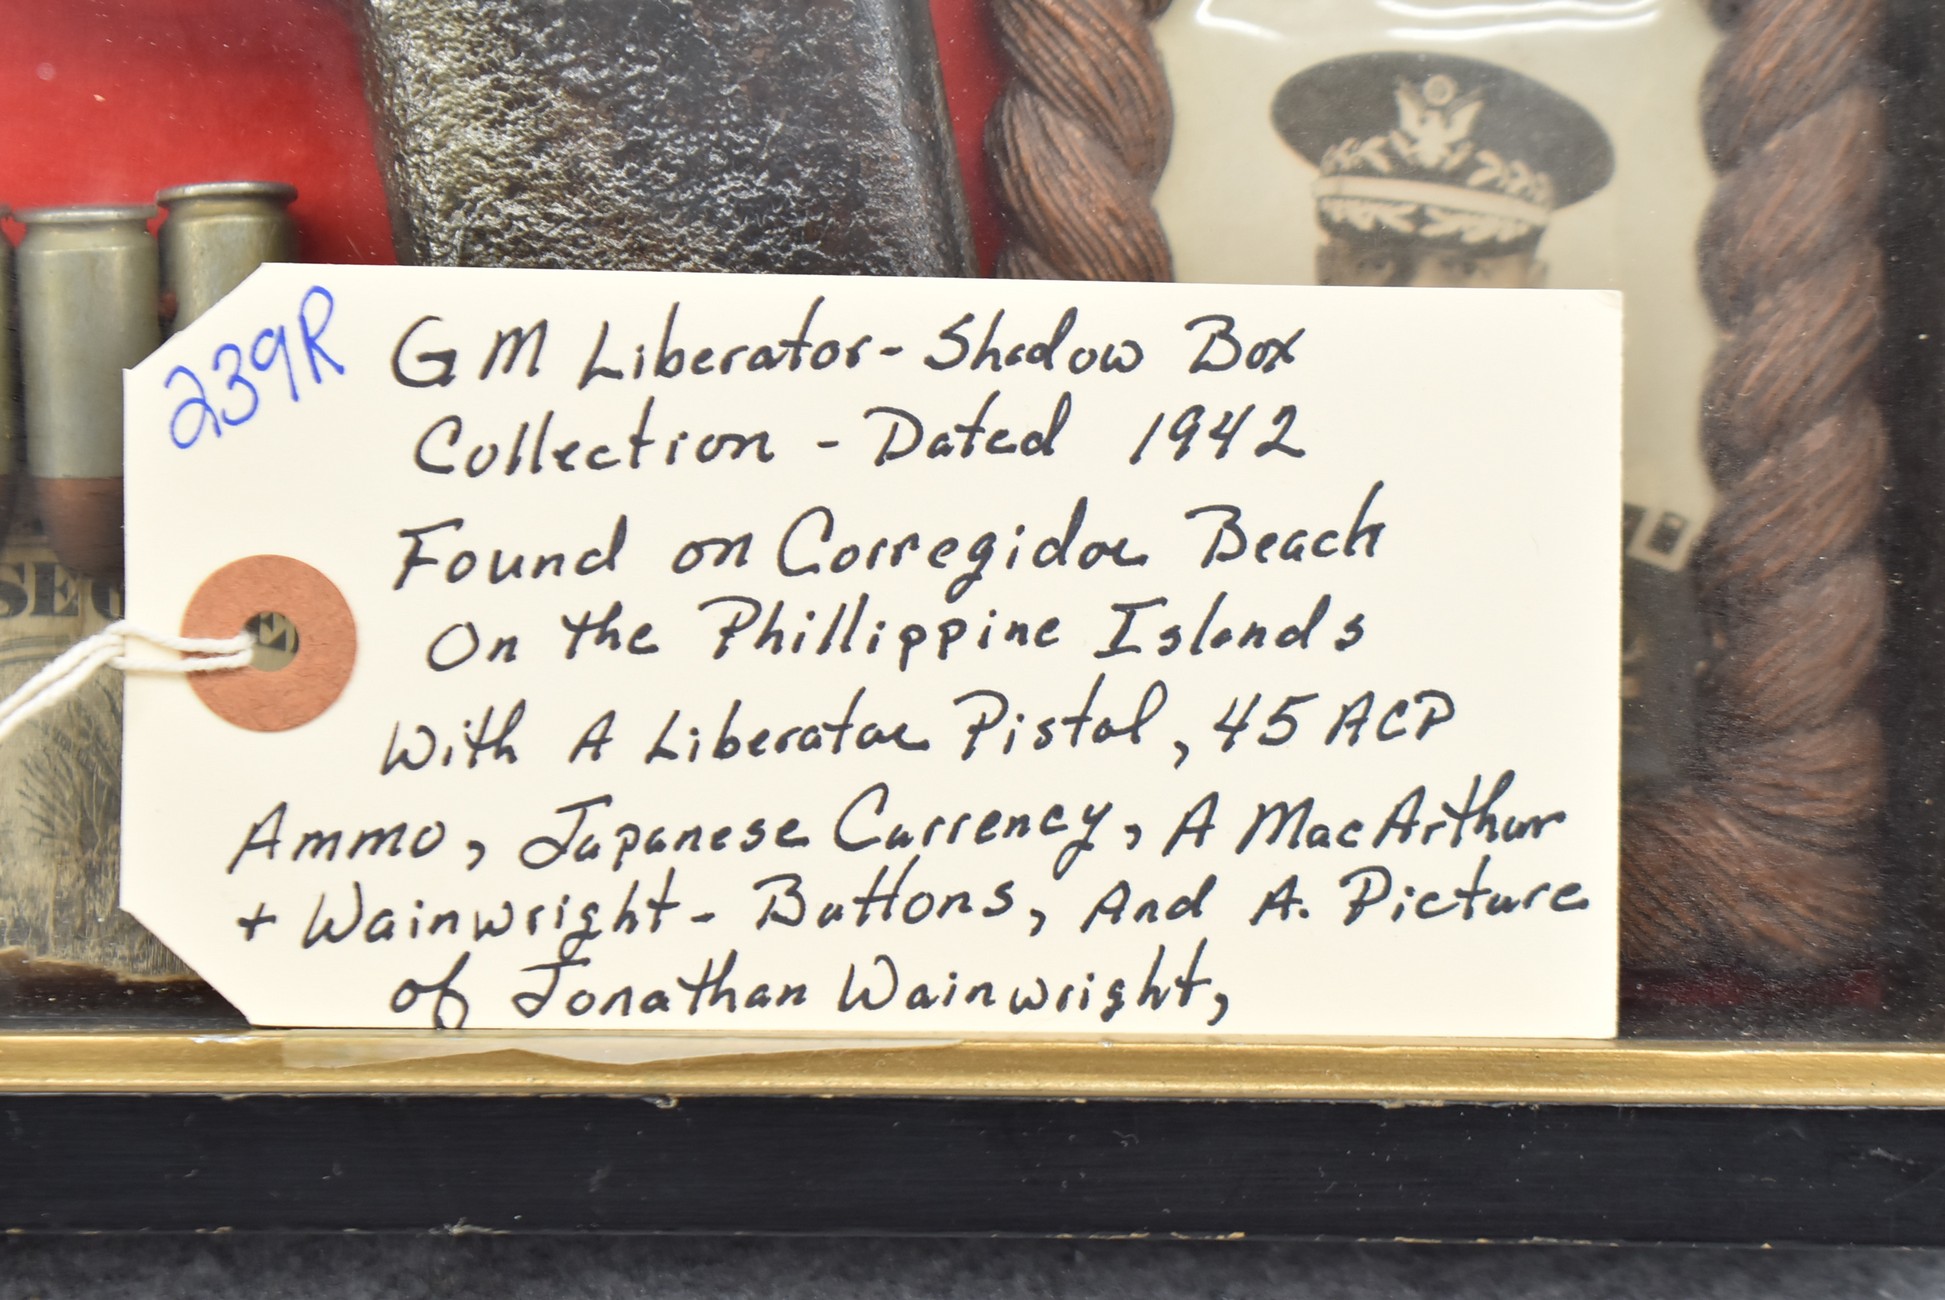 239R
GM Liberator - Shadow Box
Collection - Dated 1942
Found on Corregidor Beach
On the Phillippine Islands
With A Liberator Pistol, 45 ACP
Ammo, Japanese Currency, A MacArthur
+ Wainwright - Buttons, And A. Picture
of Jonathan Wainwright,